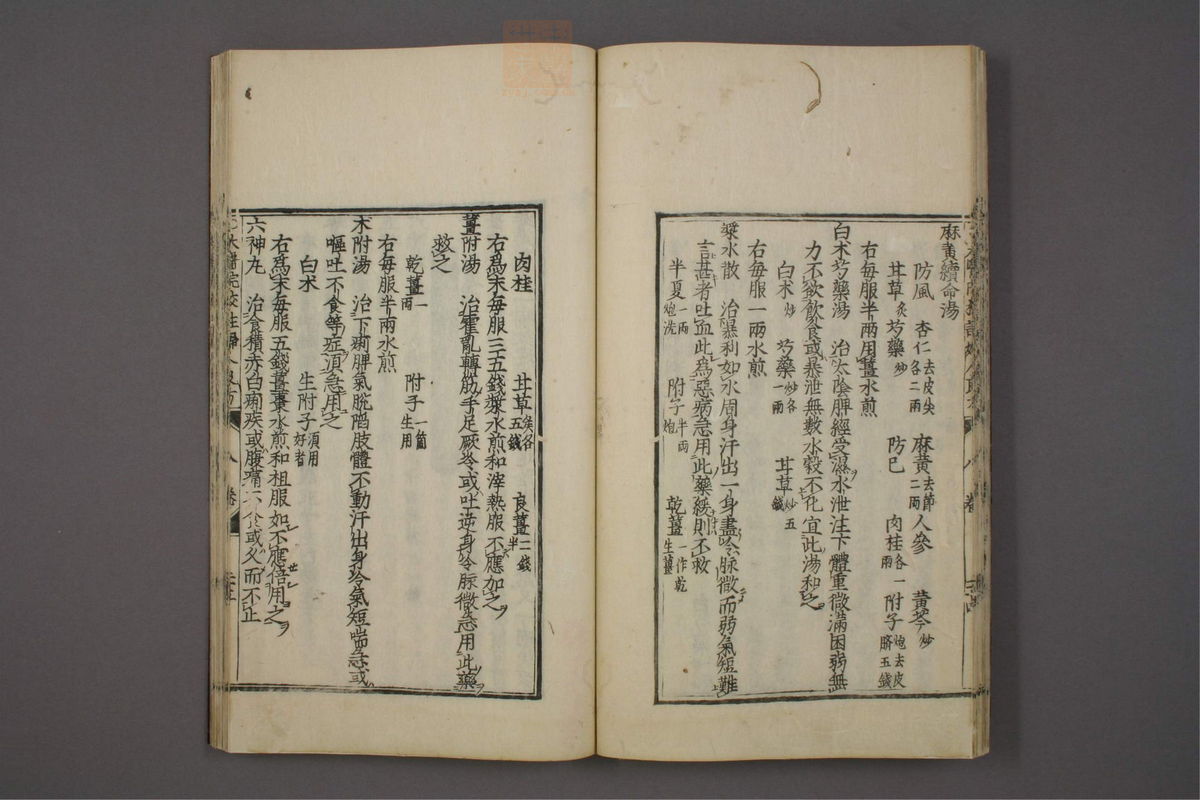 麻黄續命湯
防風 杏仁去皮尖各二兩 麻黄去節二兩 人參 黄芩炒
甘草炙 芍藥炒 防巳 肉桂各一兩 附子炮去皮臍五錢
右每服半兩用薑水煎
白术芍藥湯 治太陰脾經受濕水泄注下體重微滿困弱無
力不欲飲食或暴泄無數水穀不化宜此湯和之
白术炒 芍藥炒各一兩 甘草炒五錢
右每服一兩水煎
漿水散 治暴利如水周身汗出一身盡冷脉微而弱氣短難
言甚者吐血此爲惡病急用此藥緩則不救
半夏一兩炮洗 附子半兩炮 乾薑一作乾生薑
肉桂 甘草炙各五錢 良薑二錢半
右爲末每服三五錢漿水煎和滓熱服不應加之
薑附湯 治霍亂轉筋手足厥冷或吐逆身冷脉微急用此藥
救之
乾薑一兩 附子一箇生用
右每服半兩水煎
术附湯 治下痢脾氣脫陷肢體不動汗出身冷氣短喘急或
嘔吐不食等症須急用之
白术 生附子須用好者
右爲末每服五錢薑棗水煎和粗服如不應倍用之
六神丸 治食積赤白痢疾或腹痛不食或久而不止
卷
八 卷